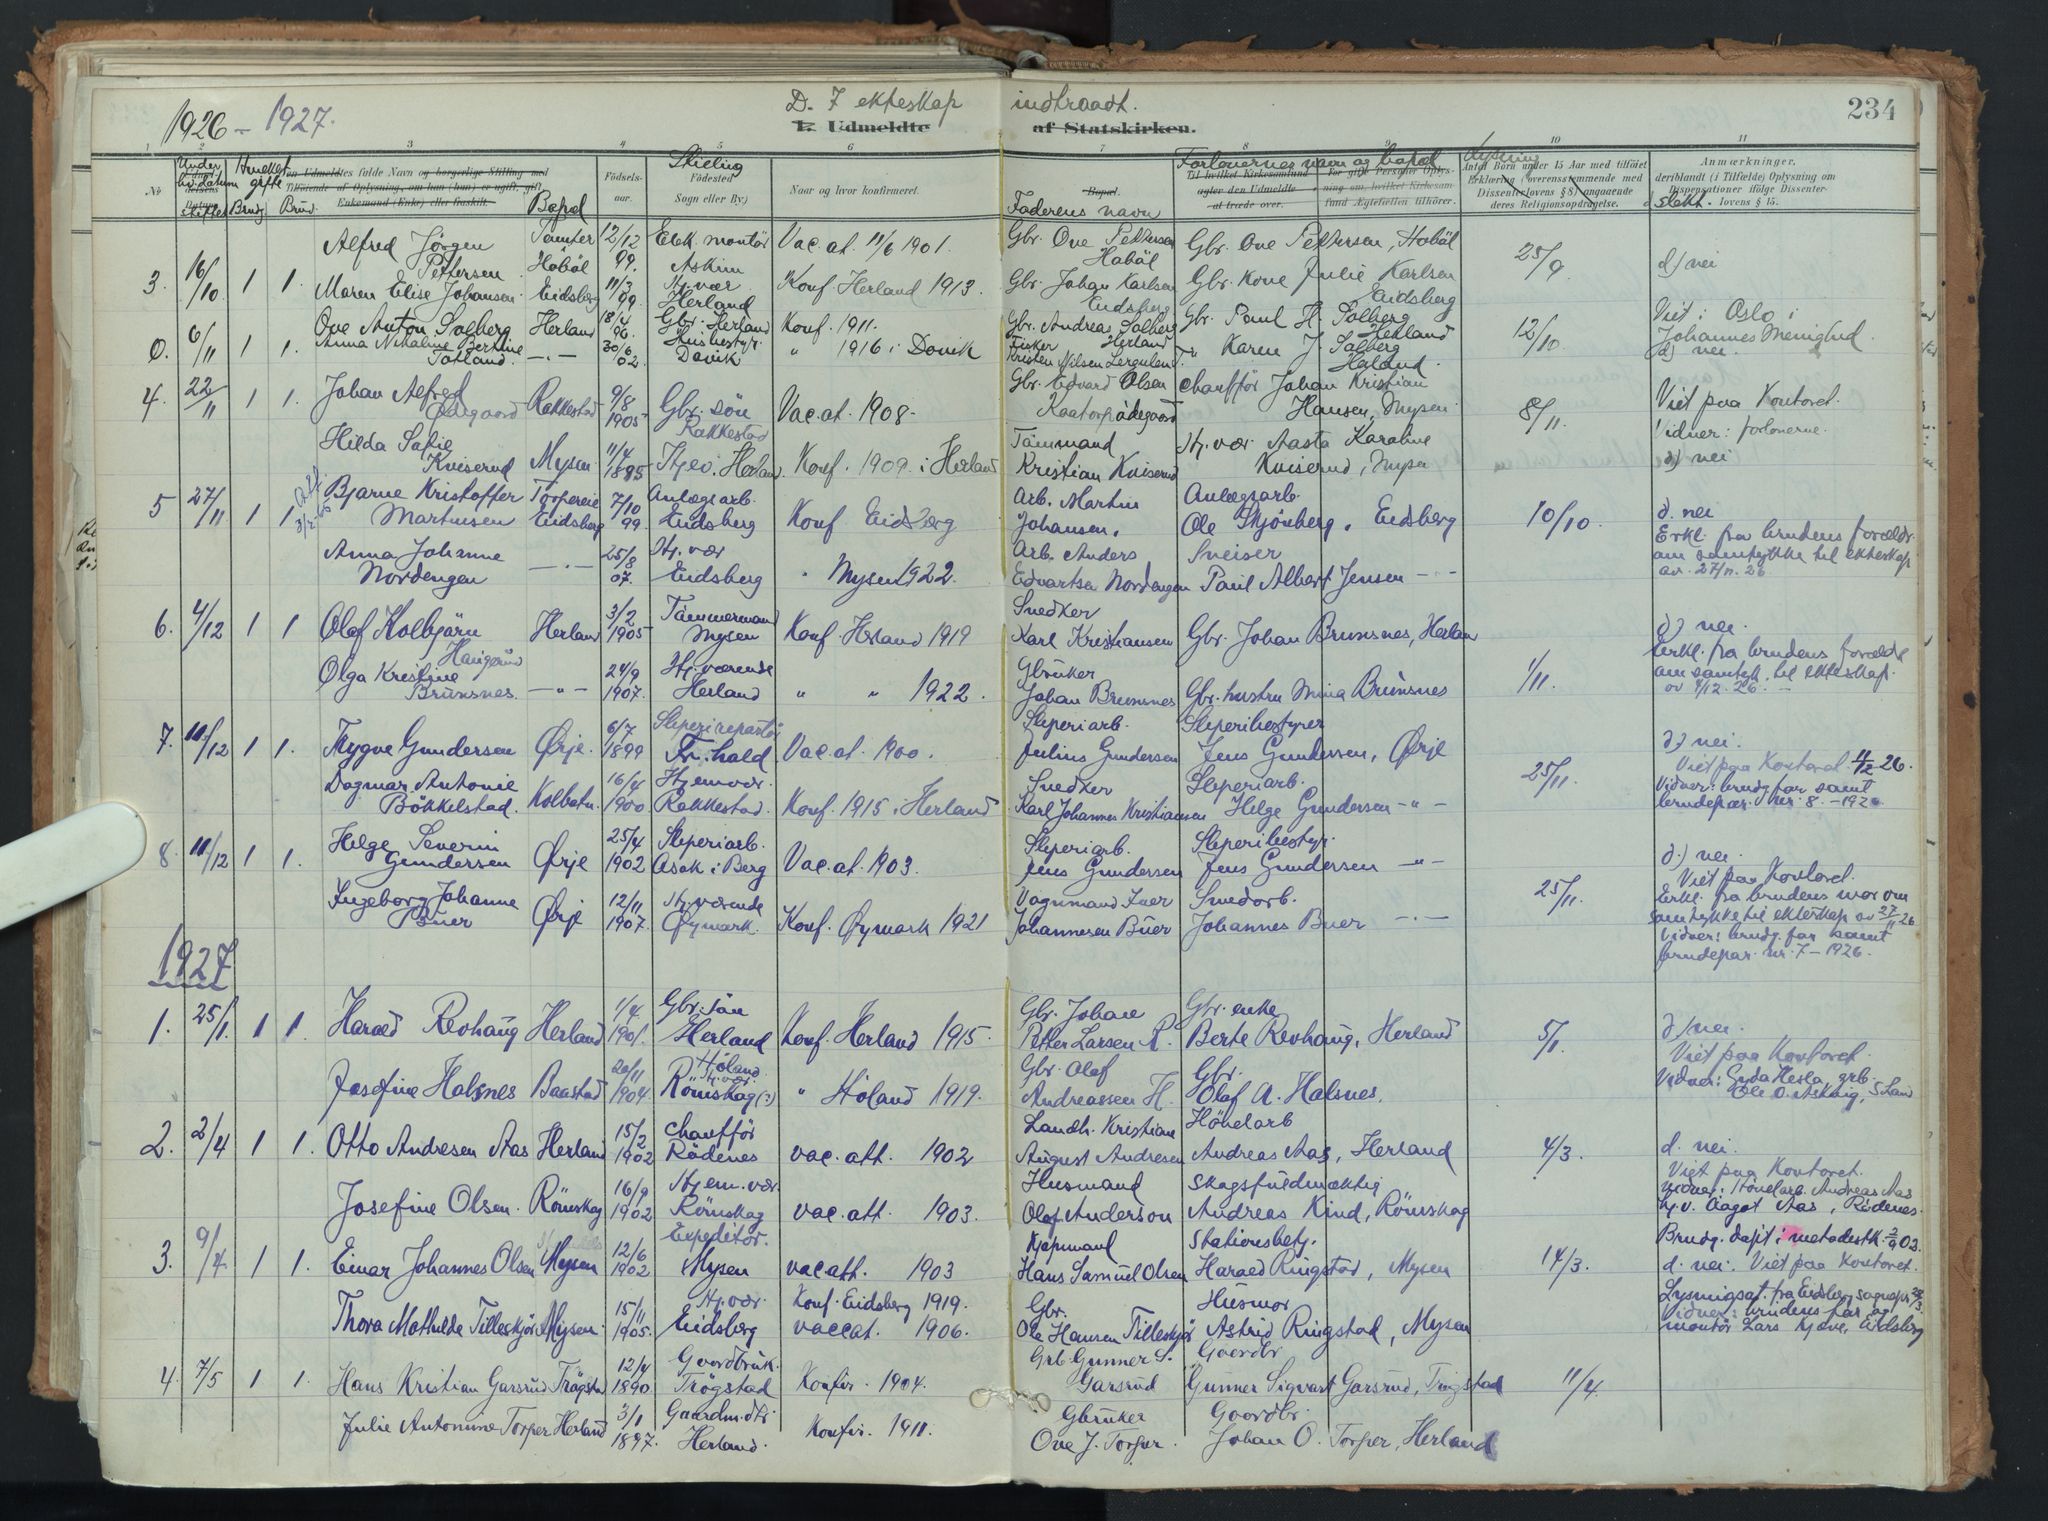 1926 – 1927.
D. I ekteskap indtraadt.
E. Udmeldte af Statskirken.
234
1 2 3 4 5 6 7 8 9 10 11
No
Fødsels-
aar.
Stilling
Fødested
Sogn eller By.)
Naar og hvor konfirmeret.
Bopæl
Bopæl.
Faderens navn
Forloverns navn og bopæl
Lysning
Antal Børn under 15 Aar med tilføiet
Erklæring (overensstemmende med
Dissenterlovens § 8) angaaende
deres Religionsopdragelse.
Anmærkninger,
deriblandt (i Tilfælde) Oplysning om
Dispensationer ifølge Dissenter-
lovens § 15.
slekt.
Alfred Jørgen Tomter 12/12 Elek. montör Vac. at. 11/6 1901. Gbr. Ove Pettersen Gbr. Ove Pettersen, Hobøl
3. 16/10 1 1. Pettersen Hobøl 99. Askim Hobøl 25/9 d) nei
Maren Elise Johansen Eidsberg 11/3 99 Hj. vær Herland Konf. Herland 1913. Gbr. Johan Karlsen Eidsberg Gbr. kone Julie Karlsen Eidsberg
0. 6/11 1 1. Ove Anton Solberg Herland 18/4 96. Gbr. Herland Konf. 1911. Gbr. Andreas Solberg Herland Gbr. Paul H. Solberg Herland 12/10 Viet i Oslo i
Johannes Menighed.
d) nei.
Anna Bertine —„— 30/6 02. Husbestyr. Davik „ 1916 i Davik Fisker Kristen Nilsen Karen J. Solberg
4. 22/11 1 1. Johan Alfred Ødegaard Rakkestad 9/8 1905 Gbr. sön Rakkestad Vac. at. 1908. Gbr. Edvard Olsen chauffør Johan Kristian Hansen, Mysen 8/11. Viet paa Kontoret.
Vidner: forloverne.
d) nei
Hilda Sofie Kviserud Mysen 11/4 1895 Hj. v. Herland Konf. 1909 i Herland Tömmand Kristian Kviserud Hj. vær. Aasta Karoline Kviserud, Mysen
5 27/11 1 1 Bjarne Kristoffer Martinsen Torpereie Eidsberg 7/10 99. Anlægsarb. Eidsberg Konf Eidsberg Arb. Martin Johansen. Anlægsarb. Ole Skjönberg, Eidsberg 10/10. d. nei
Erkl. fra brudens foreldr.
om samtykke til ekteskap
av 27/11. 26.
Anna Johanne Nordengen —„— 25/8 07. Hj. vær Eidsberg „ Mysen 1922. Arb. Anders Edvartsen Nordengen Sveiser Paul Albert Jensen —„—
6. 4/12 1 1 Olof Kolbjørn Haugerud Herland 3/2 1905 Tömmermand Mysen Konf Herland 1919 Snedker Karl Kristiansen Gbr. Johan Brunsnes, Herland 1/11. d) nei.
Erkl. fra brudens foreldr.
om samtyk. til ekteskap.
av 4/12. 26.
Olga Kristine Brunsnes. —„— 24/9 1907. Hj. værende Herland „ „ 1922. Gbruker Johan Brunsnes Gbr. hustru Mina Brunsnes
7. 11/12 1 1. Trygve Gundersen Ørje. 6/7 1899 Sliperireparatör Fr. hald Vac. at. 1900. Sliperiarb. Julius Gundersen Sliperibestyrer Jens Gundersen, Ørje 25/11. d) nei.
Viet paa Kontoret 11/12 26.
Vidner: brudg. far samt
brudepar. nr. 8. – 1926
Dagmar Antonie Bökkelstad. Kolbotn. 16/4 1900 Hjemvær. Rakkestad. Konf. 1915 i Herland Snedker Karl Johannes Kristiansen Sliperiarb. Helge Gundersen – „ –
8. 11/12 1 1. Helge Severin Gundersen Ørje 25/4 1902 Sliperiarb. Asak i Berg Vac. at. 1903. Sliperiarb. Jens Gundersen Sliperibestyr. Jens Gundersen –„– 25/11. d.) nei.
Viet paa Kontoret.
Erkl. fra brudens mor om
samtykke til ekteskap av 27/11 26
Vidner: brudg. far samt
brudepar. nr. 7 – 1926.
Ingeborg Johanne Buer Ørje 12/11 1907. Hj. værende Øymark. Konf. Øymark 1921 Vognmand Iver Johannesen Buer Smedarb. Johannes Buer –„–
1927
1. 25/1. 1 1. Harald Revhaug Herland 1/4. 1901. Gbr. sön Herland Konf. Herland 1915. Gbr. Johan Petter Larsen R. Gbr. enke Berte Revhaug, Herland 5/1. d) nei.
Viet paa Kontoret.
Josefine Halsnes Baastad 20/11 1904. Höland Hj. vær. Römskog (?) „ Höland 1919. Gbr. Olaf Andreassen H. Gbr. Olaf A. Halsnes.
2. 2/4 1 1. Otto Andresen Aas Herland 15/2 1902 chauffør Rödenes vac. att. 1902 Landh. Kristian August Andresen Hönelarb Andreas Aas, Herland 4/3. d. nei.
Viet paa Kontoret.
Vidner: Andreas Aas
hj. v. Aagot Aas, Rödenes.
Josefine Olsen. Römskog 16/9 1902 Hjem. vær. Römskog vac. att. 1903. Husmand Olof Anderson Skogsfuldmæktig Andreas Kind, Römskog
3. 9/4 1 1. Einar Johannes Olsen Mysen 12/6 1902 Expeditör. Mysen vac att. 1903 Kjøpmand Hans Samuel Olsen Stationsbetj. Harald Ringstad, Mysen 14/3. Brudg. døpt i metodistk. 2/9 02.
d. nei. Viet paa Kontoret.
Lysningsat. fra Eidsberg sogneprest
Vidner: brudens far og
montör Lars Kjøve, Eidsberg
Thora Mathilde Tilleskjör Mysen. 15/11 1905. Hj. vær. Eidsberg Konf. Eidsberg 1919. vaccat. 1906. Gbr. Ole Hansen Tilleskjör Husmor Astrid Ringstad, Mysen
4. 7/5 1 1 Hans Kristian Garsrud Trögstad 12/4 1890. Gaardbruk. Trögstad Konfir. 1904. Grb Gunner S. Garsrud Gaardbr. Gunner Sigvart Garsrud, Trögstad 11/4.
Julie Antonine Torper Herland 3/1 1897. Gaardm. dtr. Herland. Konfir. 1911. Gbruker Ove J. Torper. Gaardbr. Johan O. Torper, Herland